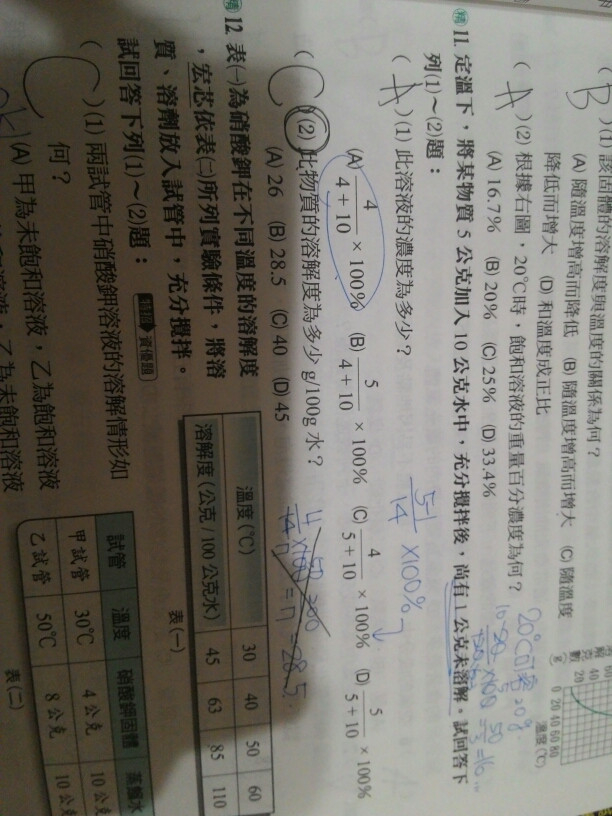 ( B )(1) 該固體的溶解度與溫度的關係為何？
(A) 隨溫度增高而降低 (B) 隨溫度增高而增大 (C) 隨溫度
降低而增大 (D) 和溫度成正比
( A )(2) 根據右圖，20℃時，飽和溶液的重量百分濃度為何？
(A) 16.7% (B) 20% (C) 25% (D) 33.4%
20
40
60
0 20 40 60 80
溫度(℃)
11. 定溫下，將某物質 5 公克加入 10 公克水中，充分攪拌後，尚有 1 公克未溶解。試回答下
列(1)～(2)題：
( A )(1) 此溶液的濃度為多少？
5-1
14 ×100%
(A) 4/4+10 ×100% (B) 5/4+10 ×100% (C) 4/5+10 ×100% (D) 5/5+10 ×100%
( C )(2) 此物質的溶解度為多少 g/100g 水？
(A) 26 (B) 28.5 (C) 40 (D) 45
12. 表(一)為硝酸鉀在不同溫度的溶解度
，宏芯依表(二)所列實驗條件，將溶
質、溶劑放入試管中，充分攪拌。
試回答下列(1)～(2)題： 資優題
溫度(℃) 30 40 50 60
溶解度(公克/100 公克水) 45 63 85 110
表(一)
( C )(1) 兩試管中硝酸鉀溶液的溶解情形如
何？
(A) 甲為未飽和溶液，乙為飽和溶液
乙為未飽和溶液
試管 溫度 硝酸鉀固體 蒸餾水
甲試管 30℃ 4 公克 10 公克
乙試管 50℃ 8 公克 10 公克
表(二)